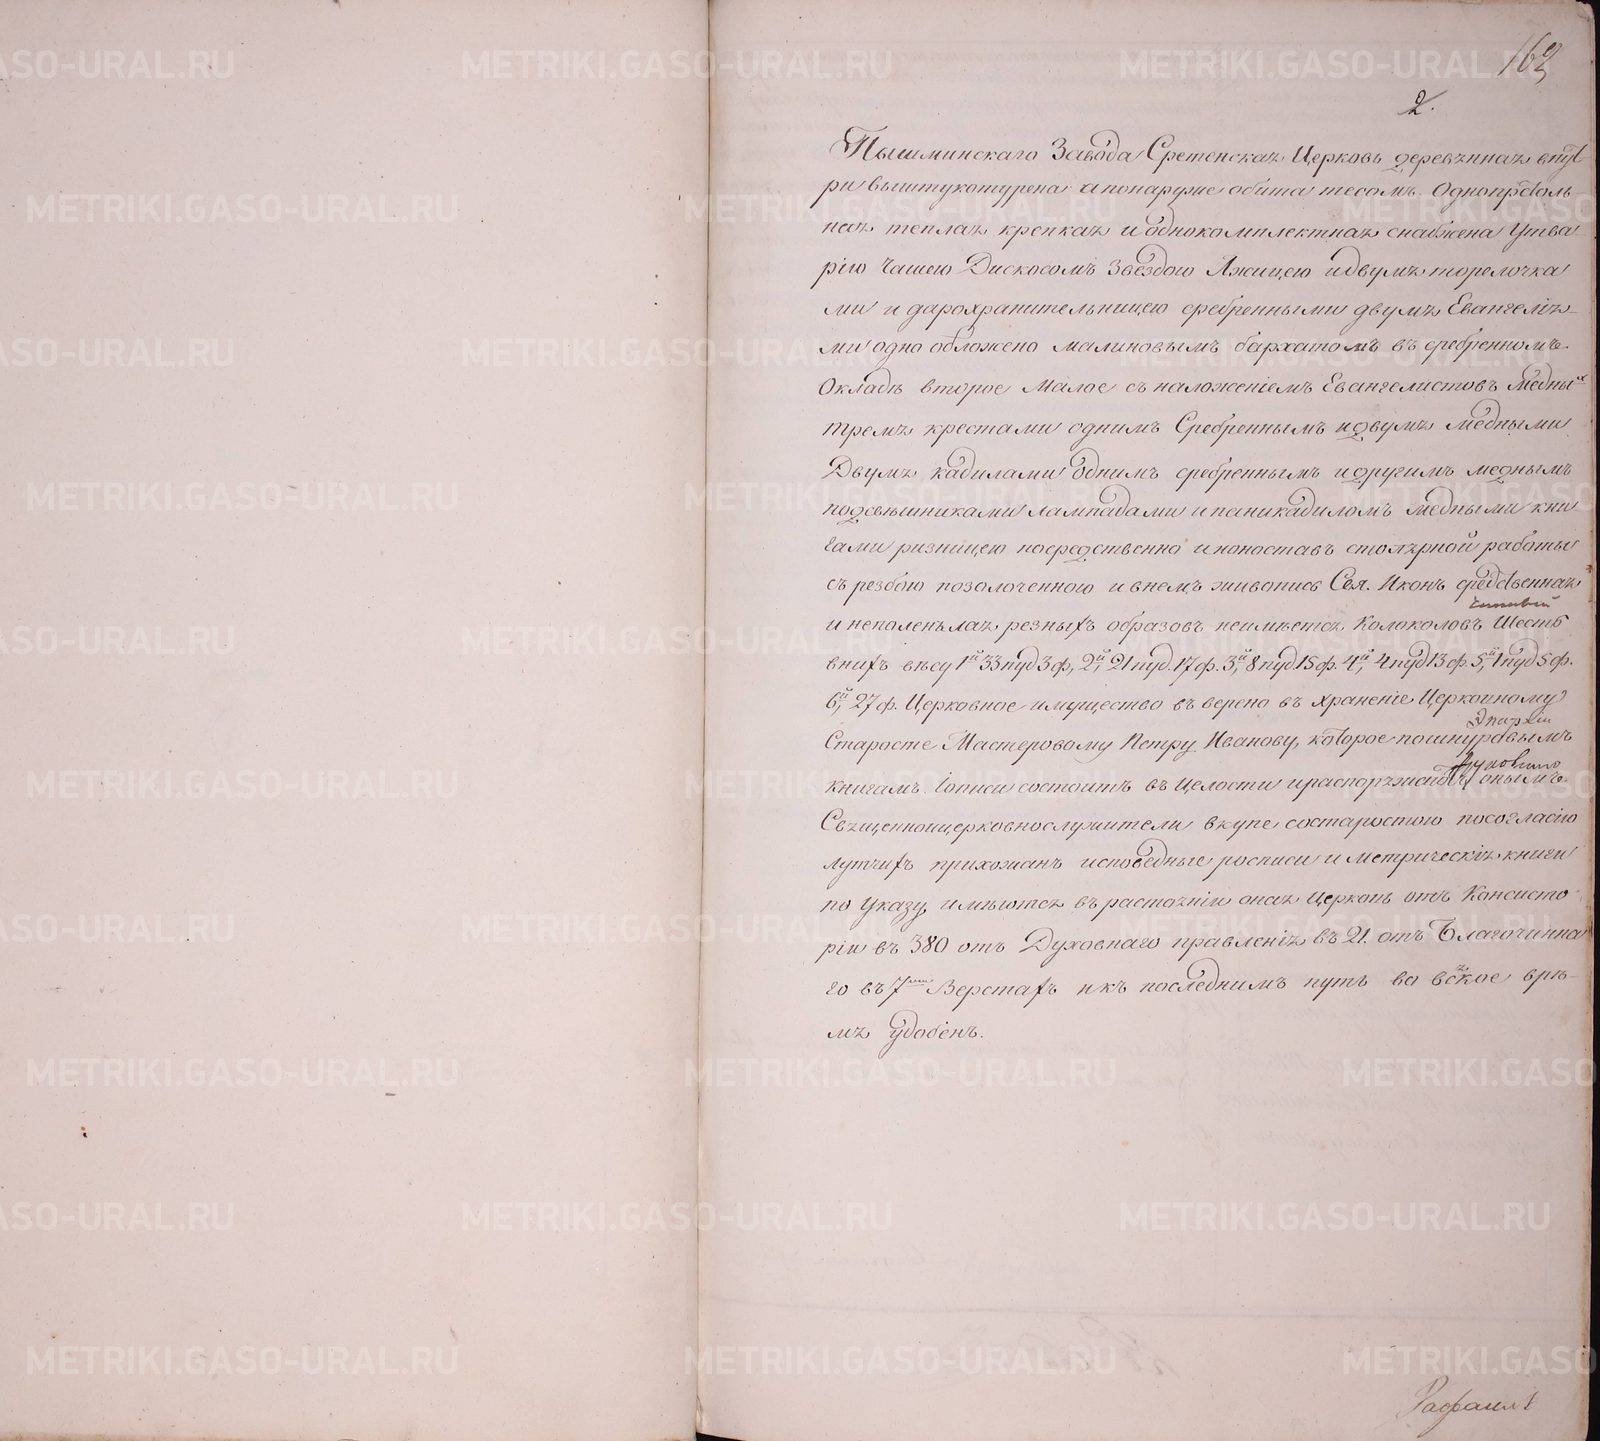 169
2.
Пышминскаго Завода Сретенская Церковь деревянная внут
ри выштукотурена а понаружне обита тесомъ. Однопрестоль
ная теплая крепкая и однокомплектная снабжена Утва
рію Чашею Дискосомъ Звездою Лжицею и двумя торелочка
ми и дарохранительницею сребренными двумя Евангелия
ми одно обложено малиновымъ бархатомъ въ сребренномъ
Окладѣ второе Малое съ наложеніемъ Евангелистовъ медных
тремя крестами однимъ Сребреннымъ и двумя медными
Двумя кадилами однимъ сребреннымъ и другимъ меднымъ
подсвѣшниками лампадами и паникадиломъ медными кни
гами ризницею посредственно иконоставъ столярной работы
съ резбою позолоченною и в немъ живопись Свя. Иконъ средственная
и неполенялая резныхъ образовъ неимѣется Колоколовъ Шесть
в нихъ вѣсу 1й 33 пуд 3 ф, 2й, 21 пуд. 17 ф. 3й, 8 пуд 15 ф. 4й, 4 пуд 13 ф. 5й, 1 пуд 5 ф.
6й, 27 ф. Церковное имущество въ верено въ храненіе Церковному
Старосте Мастеровому Петру Иванову, которое по шнуровымъ
книгамъ. Iописи состоитъ въ Целости и распоряжаютъ онымъ
Священноицерковнослужители вкупе состаростою посогласію
лутчихъ прихожанъ исповедные росписи и метрическія книги
по Указу, имѣются въ растояніи оная Церковь отъ Консисто
ріи въ 380 отъ Духовнаго правленія въ 21. отъ Благочинна
го въ 7ми Верстахъ и къ последнимъ путь во всякое врѣ-
мя удобенъ.
Рафаилъ
METRIKI.GASO-URAL.RU